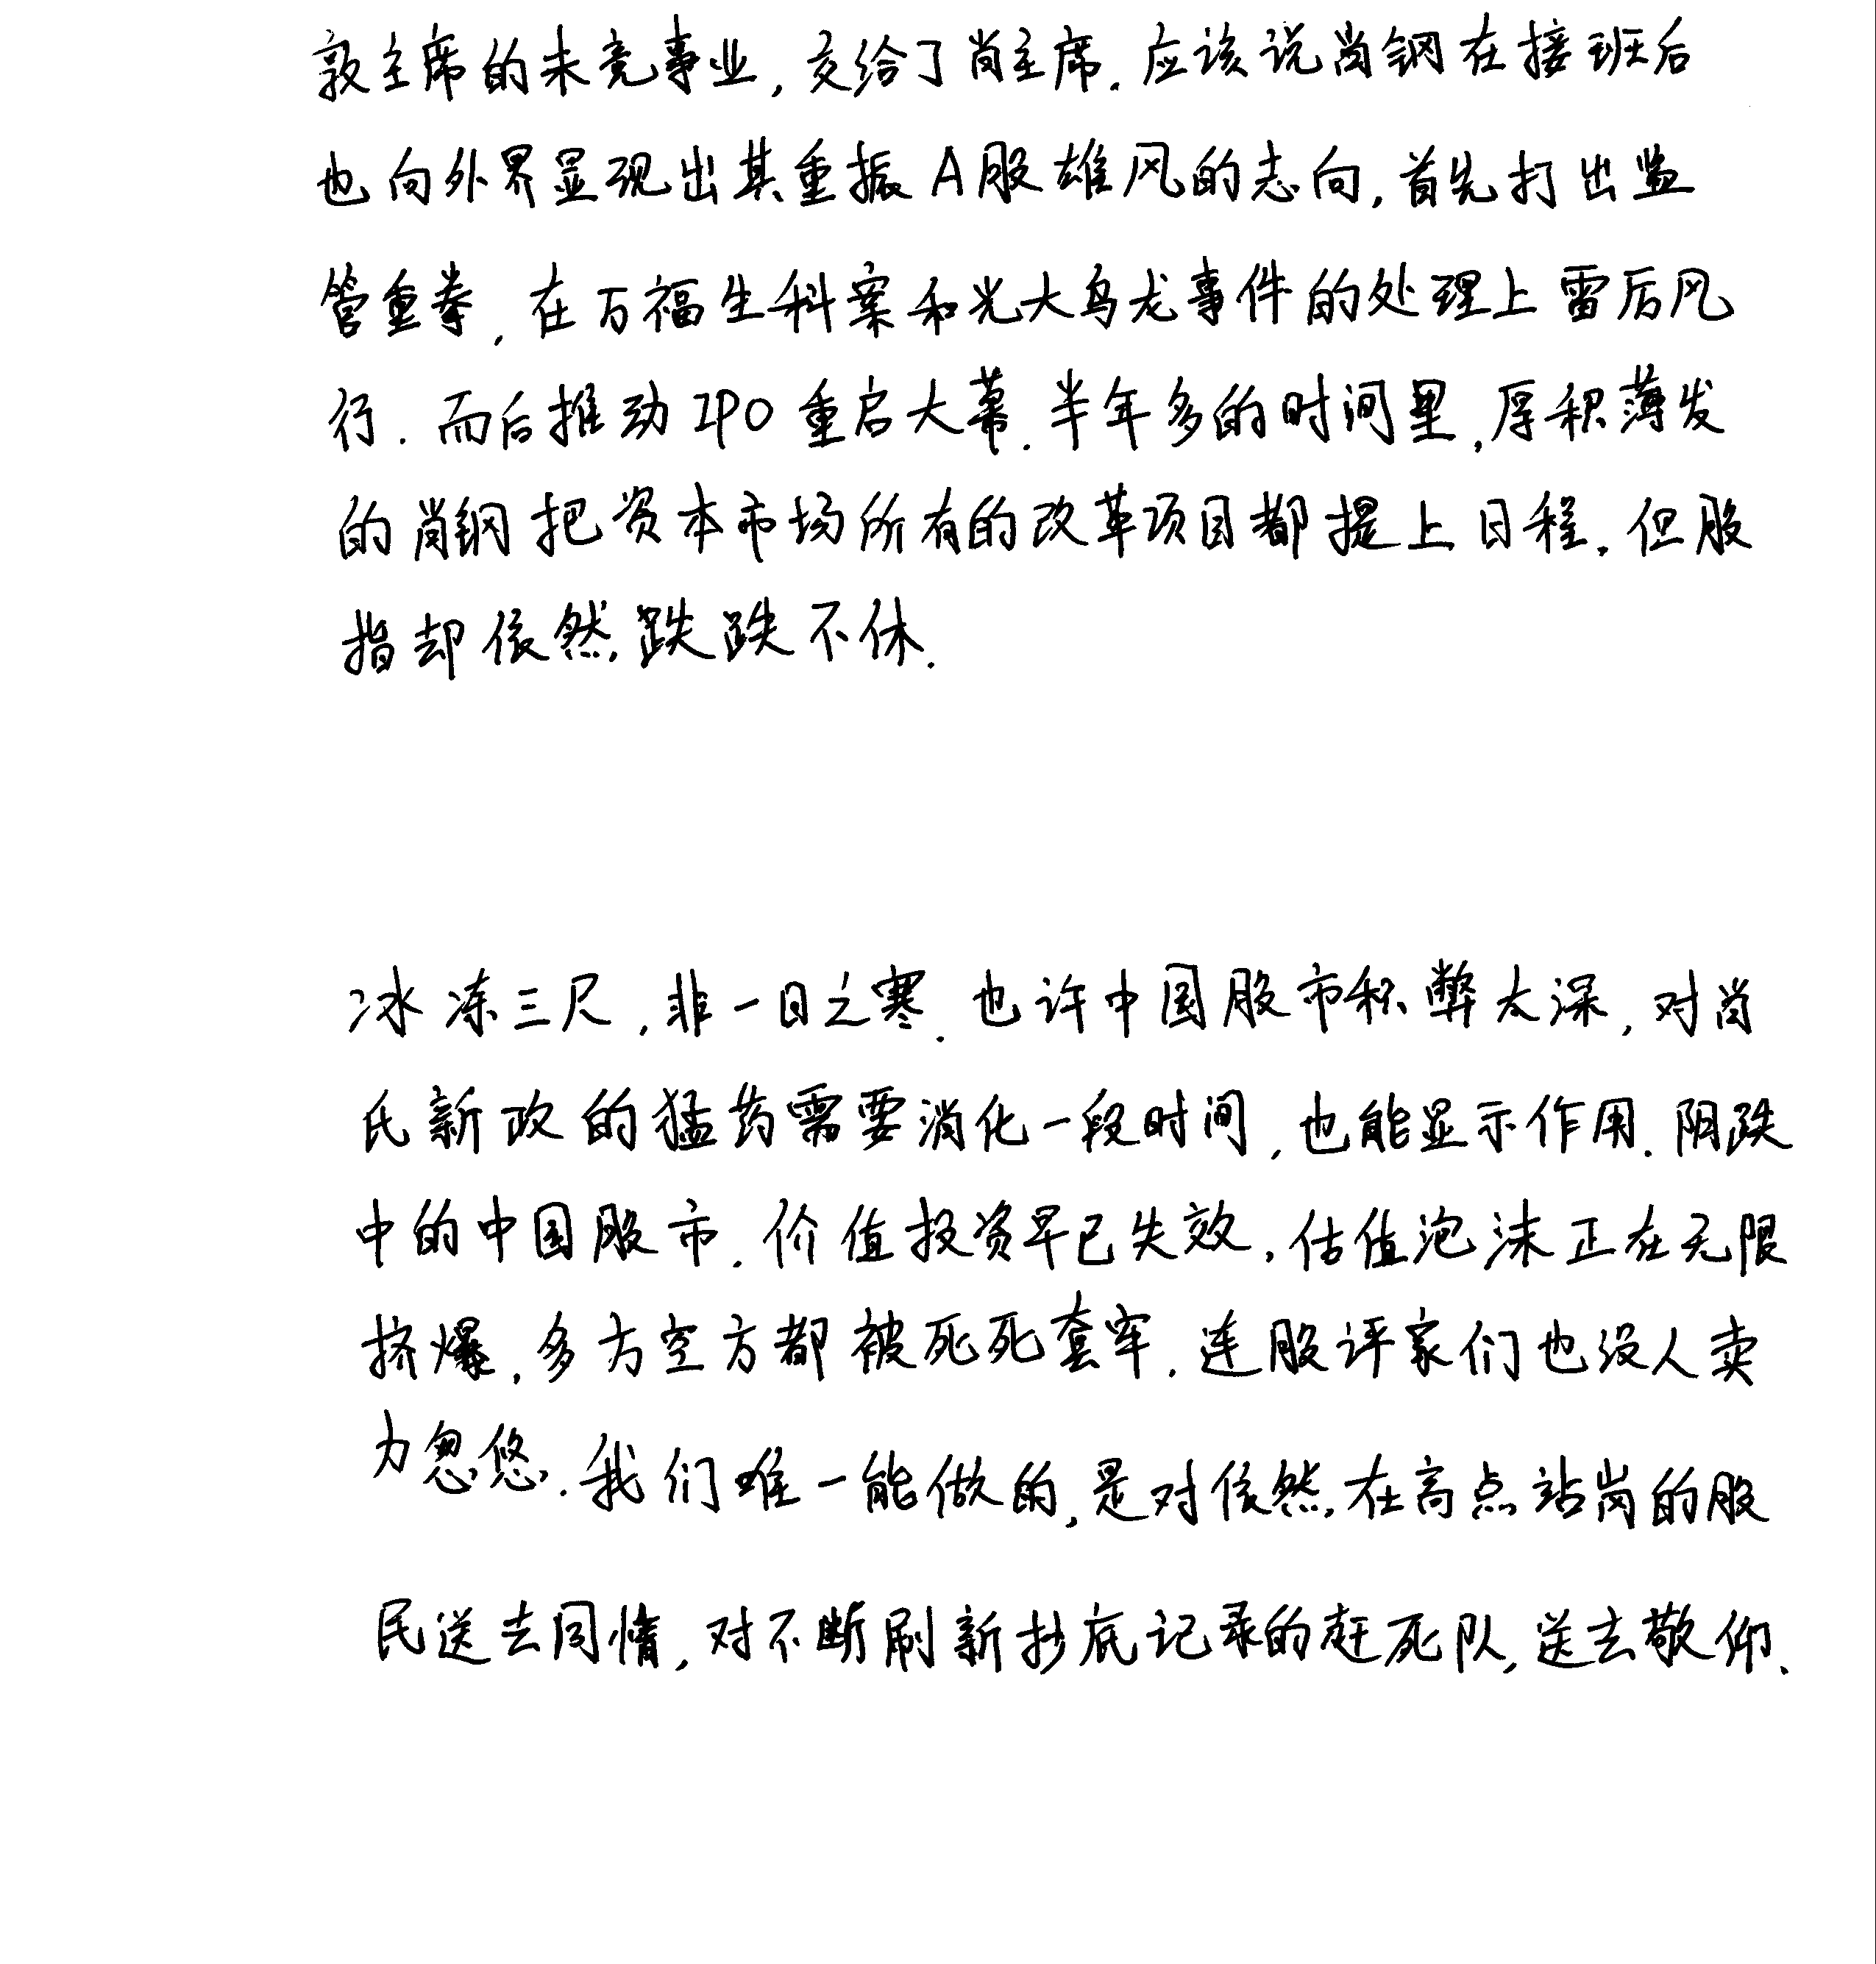 敦主席的未竞事业,交给了肖主席.应该说尚钢在接班后
也向外界显现出其重振A股雄风的志向,首先打出监
管重拳,在万福生科案和光大乌龙事件的处理上雷厉风
行.而后推动IPO重启大幕.半年多的时间里,厚积薄发
的尚钢把资本市场所有的改革项目都提上日程.但股
指却依然跌跌不休.
冰冻三尺,非一日之寒.也许中国股市积弊太深,对肖
氏新政的猛药需要消化一段时间,也能显示作用.阴跌
中的中国股市.价值投资早已失效,估值泡沫正在无限
挤爆,多方空方都被死死套牢.连股评家们也没人卖
力忽悠.我们唯一能做的,是对依然在高点站岗的股
民送去同情,对不断刷新抄底记录的赶死队,送去敬仰.